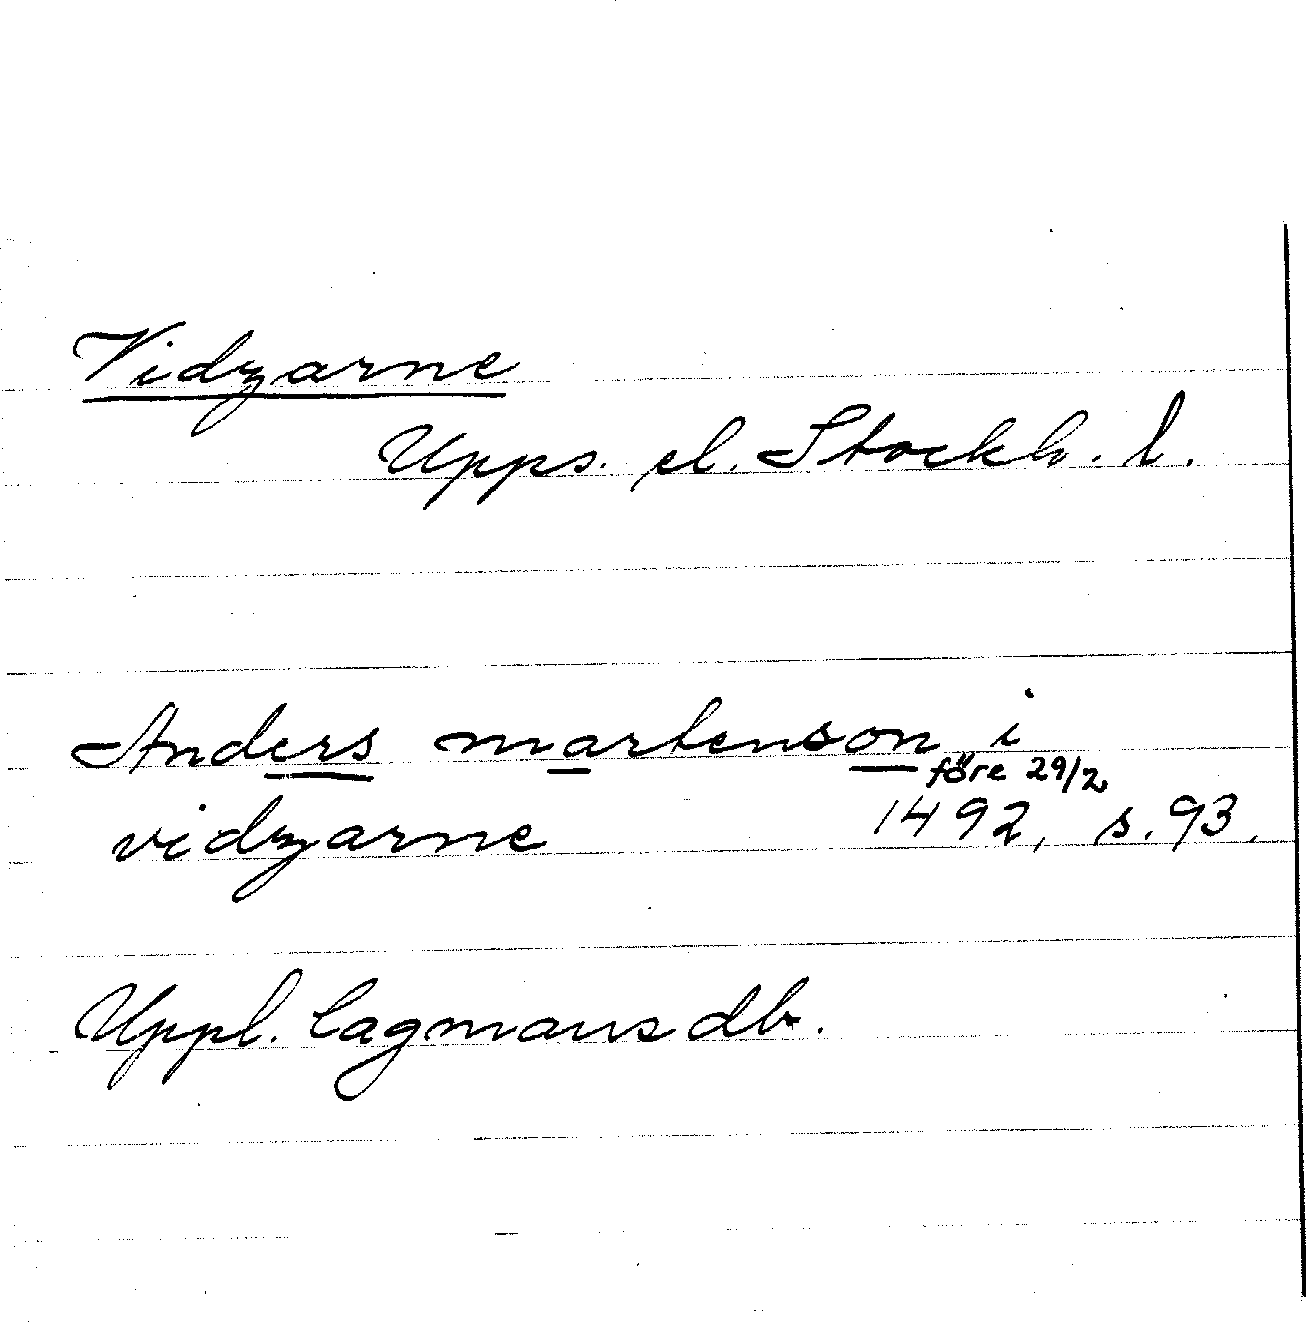 Vidzarne
Upps. el. Stockh. l.
Anders martenson i
före 29/2
vidzarne 1492, s. 93.
Uppl. lagmansdb.